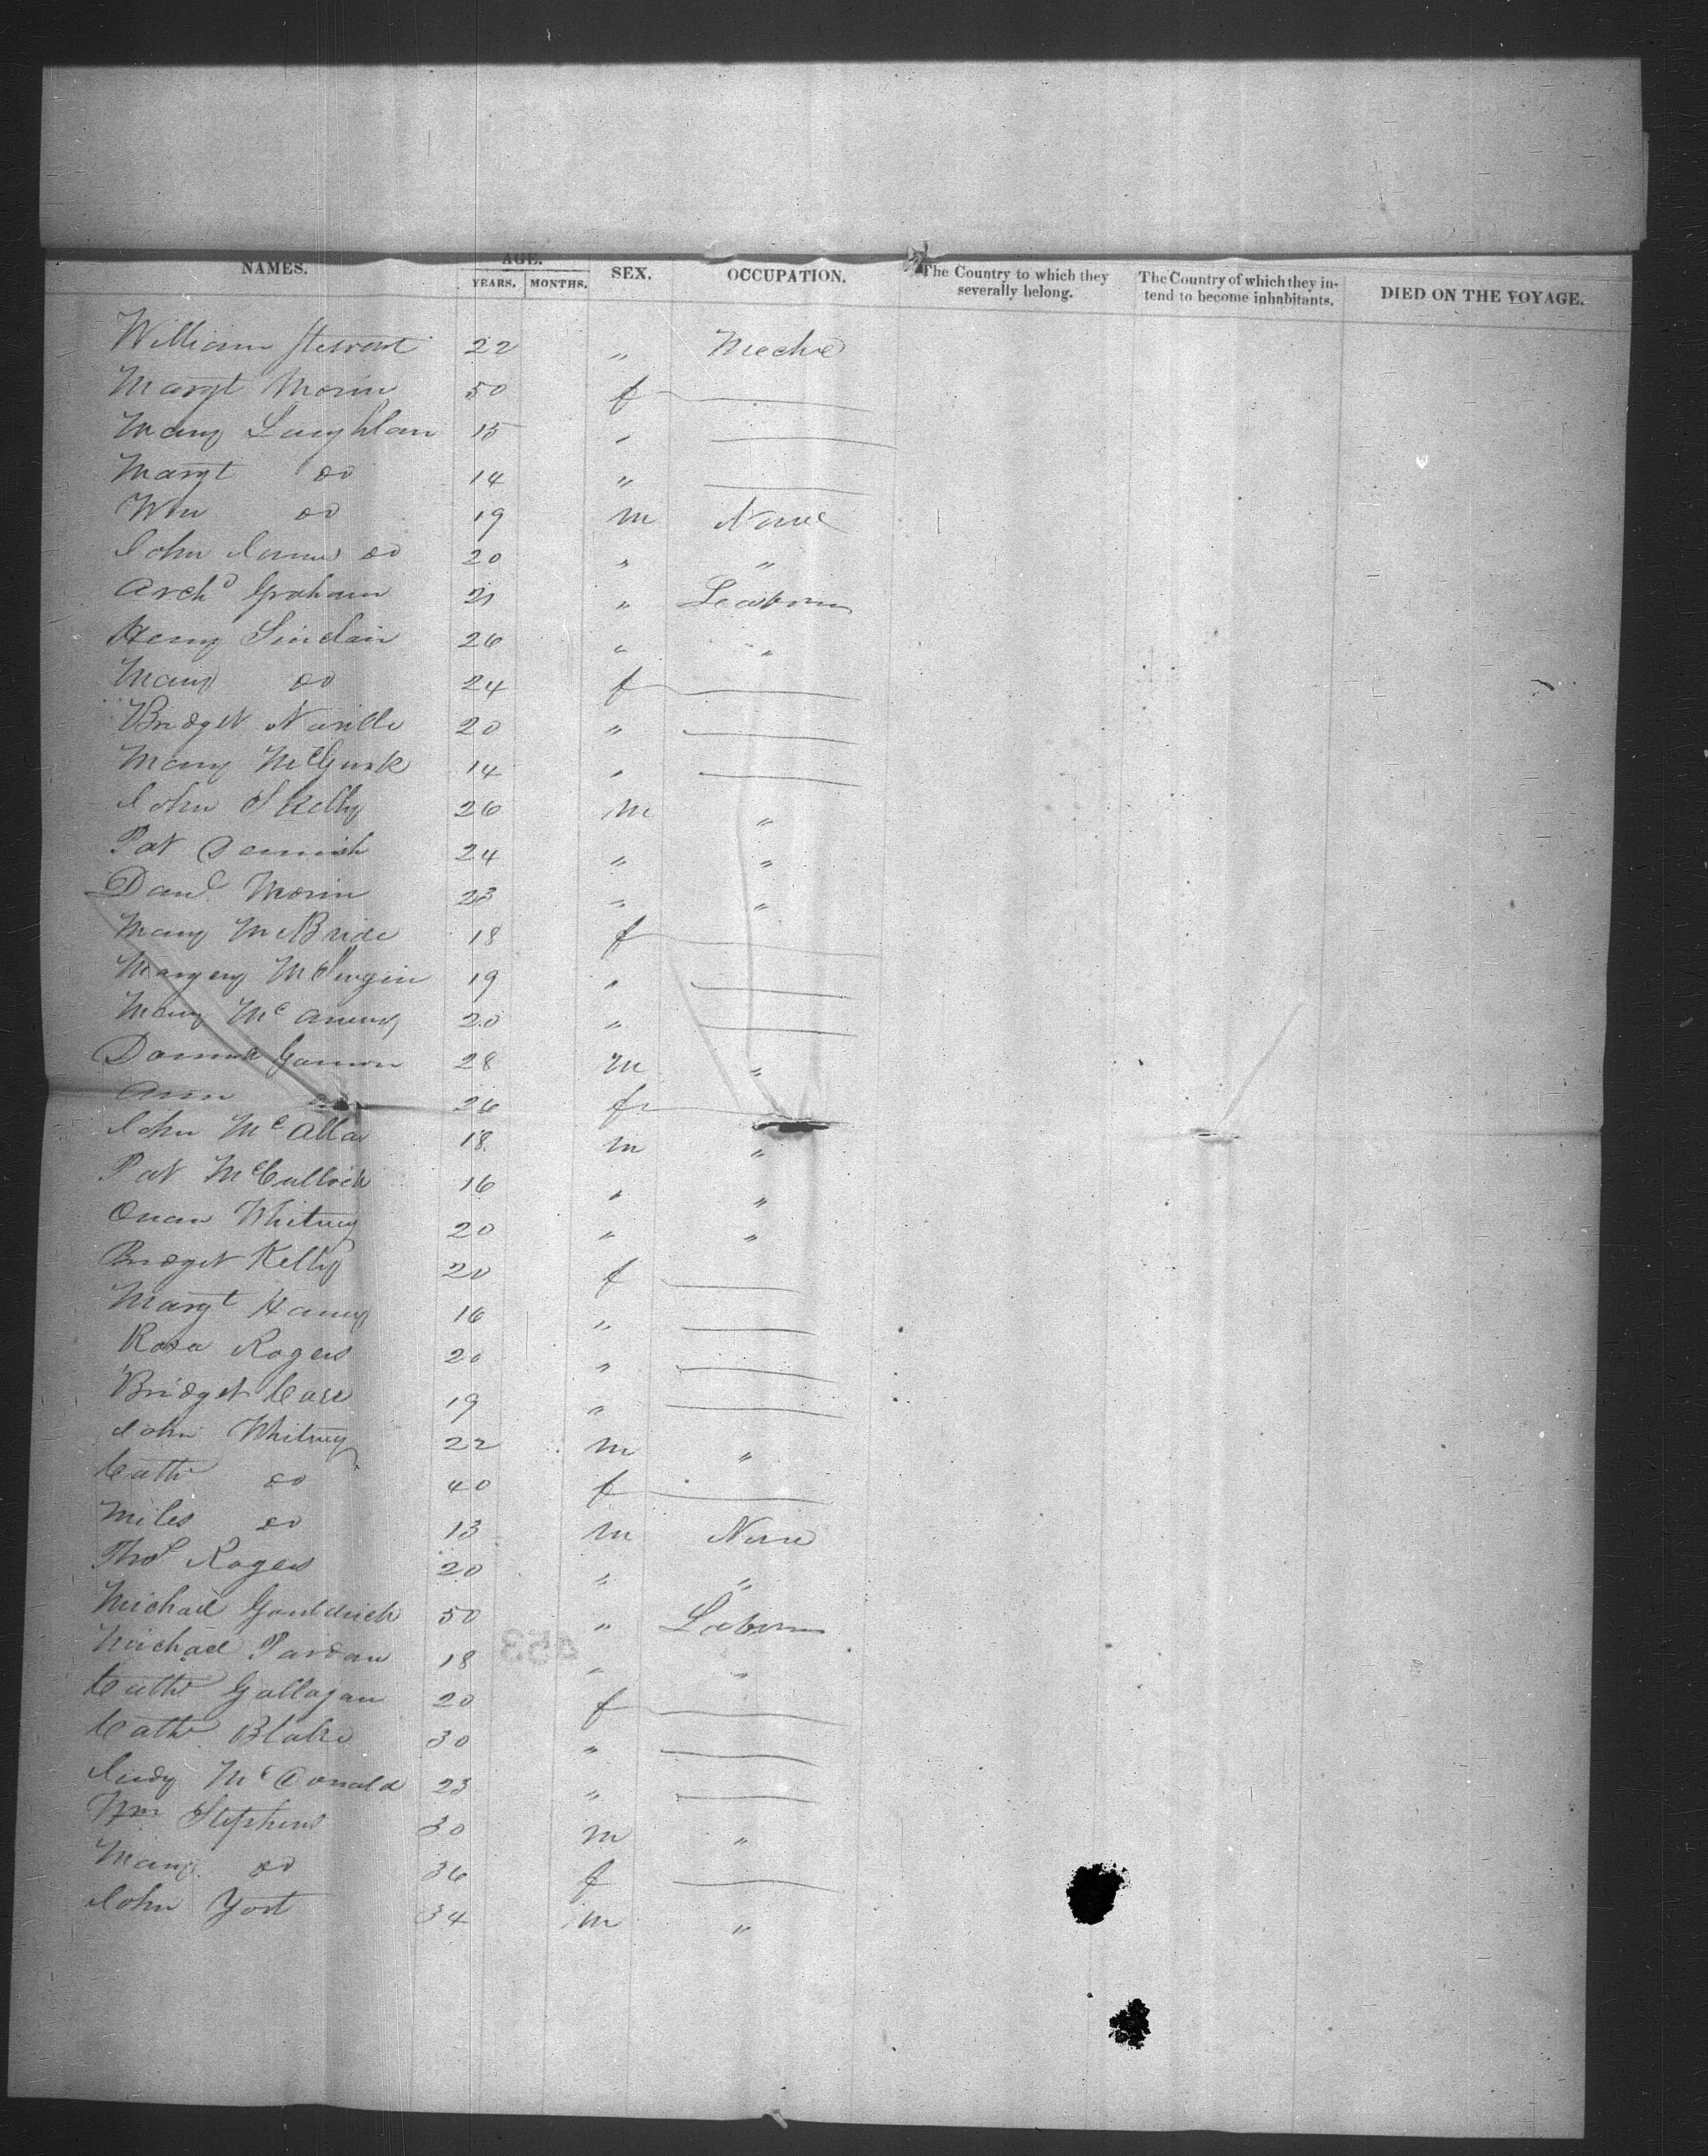 NAMES. AGE. YEARS. MONTHS. SEX. OCCUPATION. The Country to which they severally belong. The Country of which they intend to become inhabitants. DIED ON THE VOYAGE.
William Stewart 22 " Mechc
Margt Morin 50 f
Mary Laughlan 15 "
Margt do 14 "
Wm do 19 m None
John James do 20 " "
Archd Graham 21 " Laborer
Henry Sinclair 26 " "
Mary do 24 f
Bridget Neville 20 "
Mary McGurk 14 "
John Skelly 26 m "
Pat 24 " "
Danl Morin 23 " "
Mary McBride 18 f
Margery 19 "
Mary 20 "
28 m "
Ann 26 f
John 18 m "
Pat McCulloch 16 " "
Owen Whitney 20 " "
Bridget Kelly 20 f
Margt 16 "
Rosa Rogers 20 "
Bridget Carr 19 "
John Whitney 22 m "
Cathe do 40 f
Miles do 13 m None
Thos Rogers 20 " "
Michael 50 " Laborer
Michael 18 " "
Cathe 20 f
Cathe Blake 30 "
Judy McDonald 23 "
Wm Stephens 30 m "
Mary do 36 f
John Yost 34 m "
453